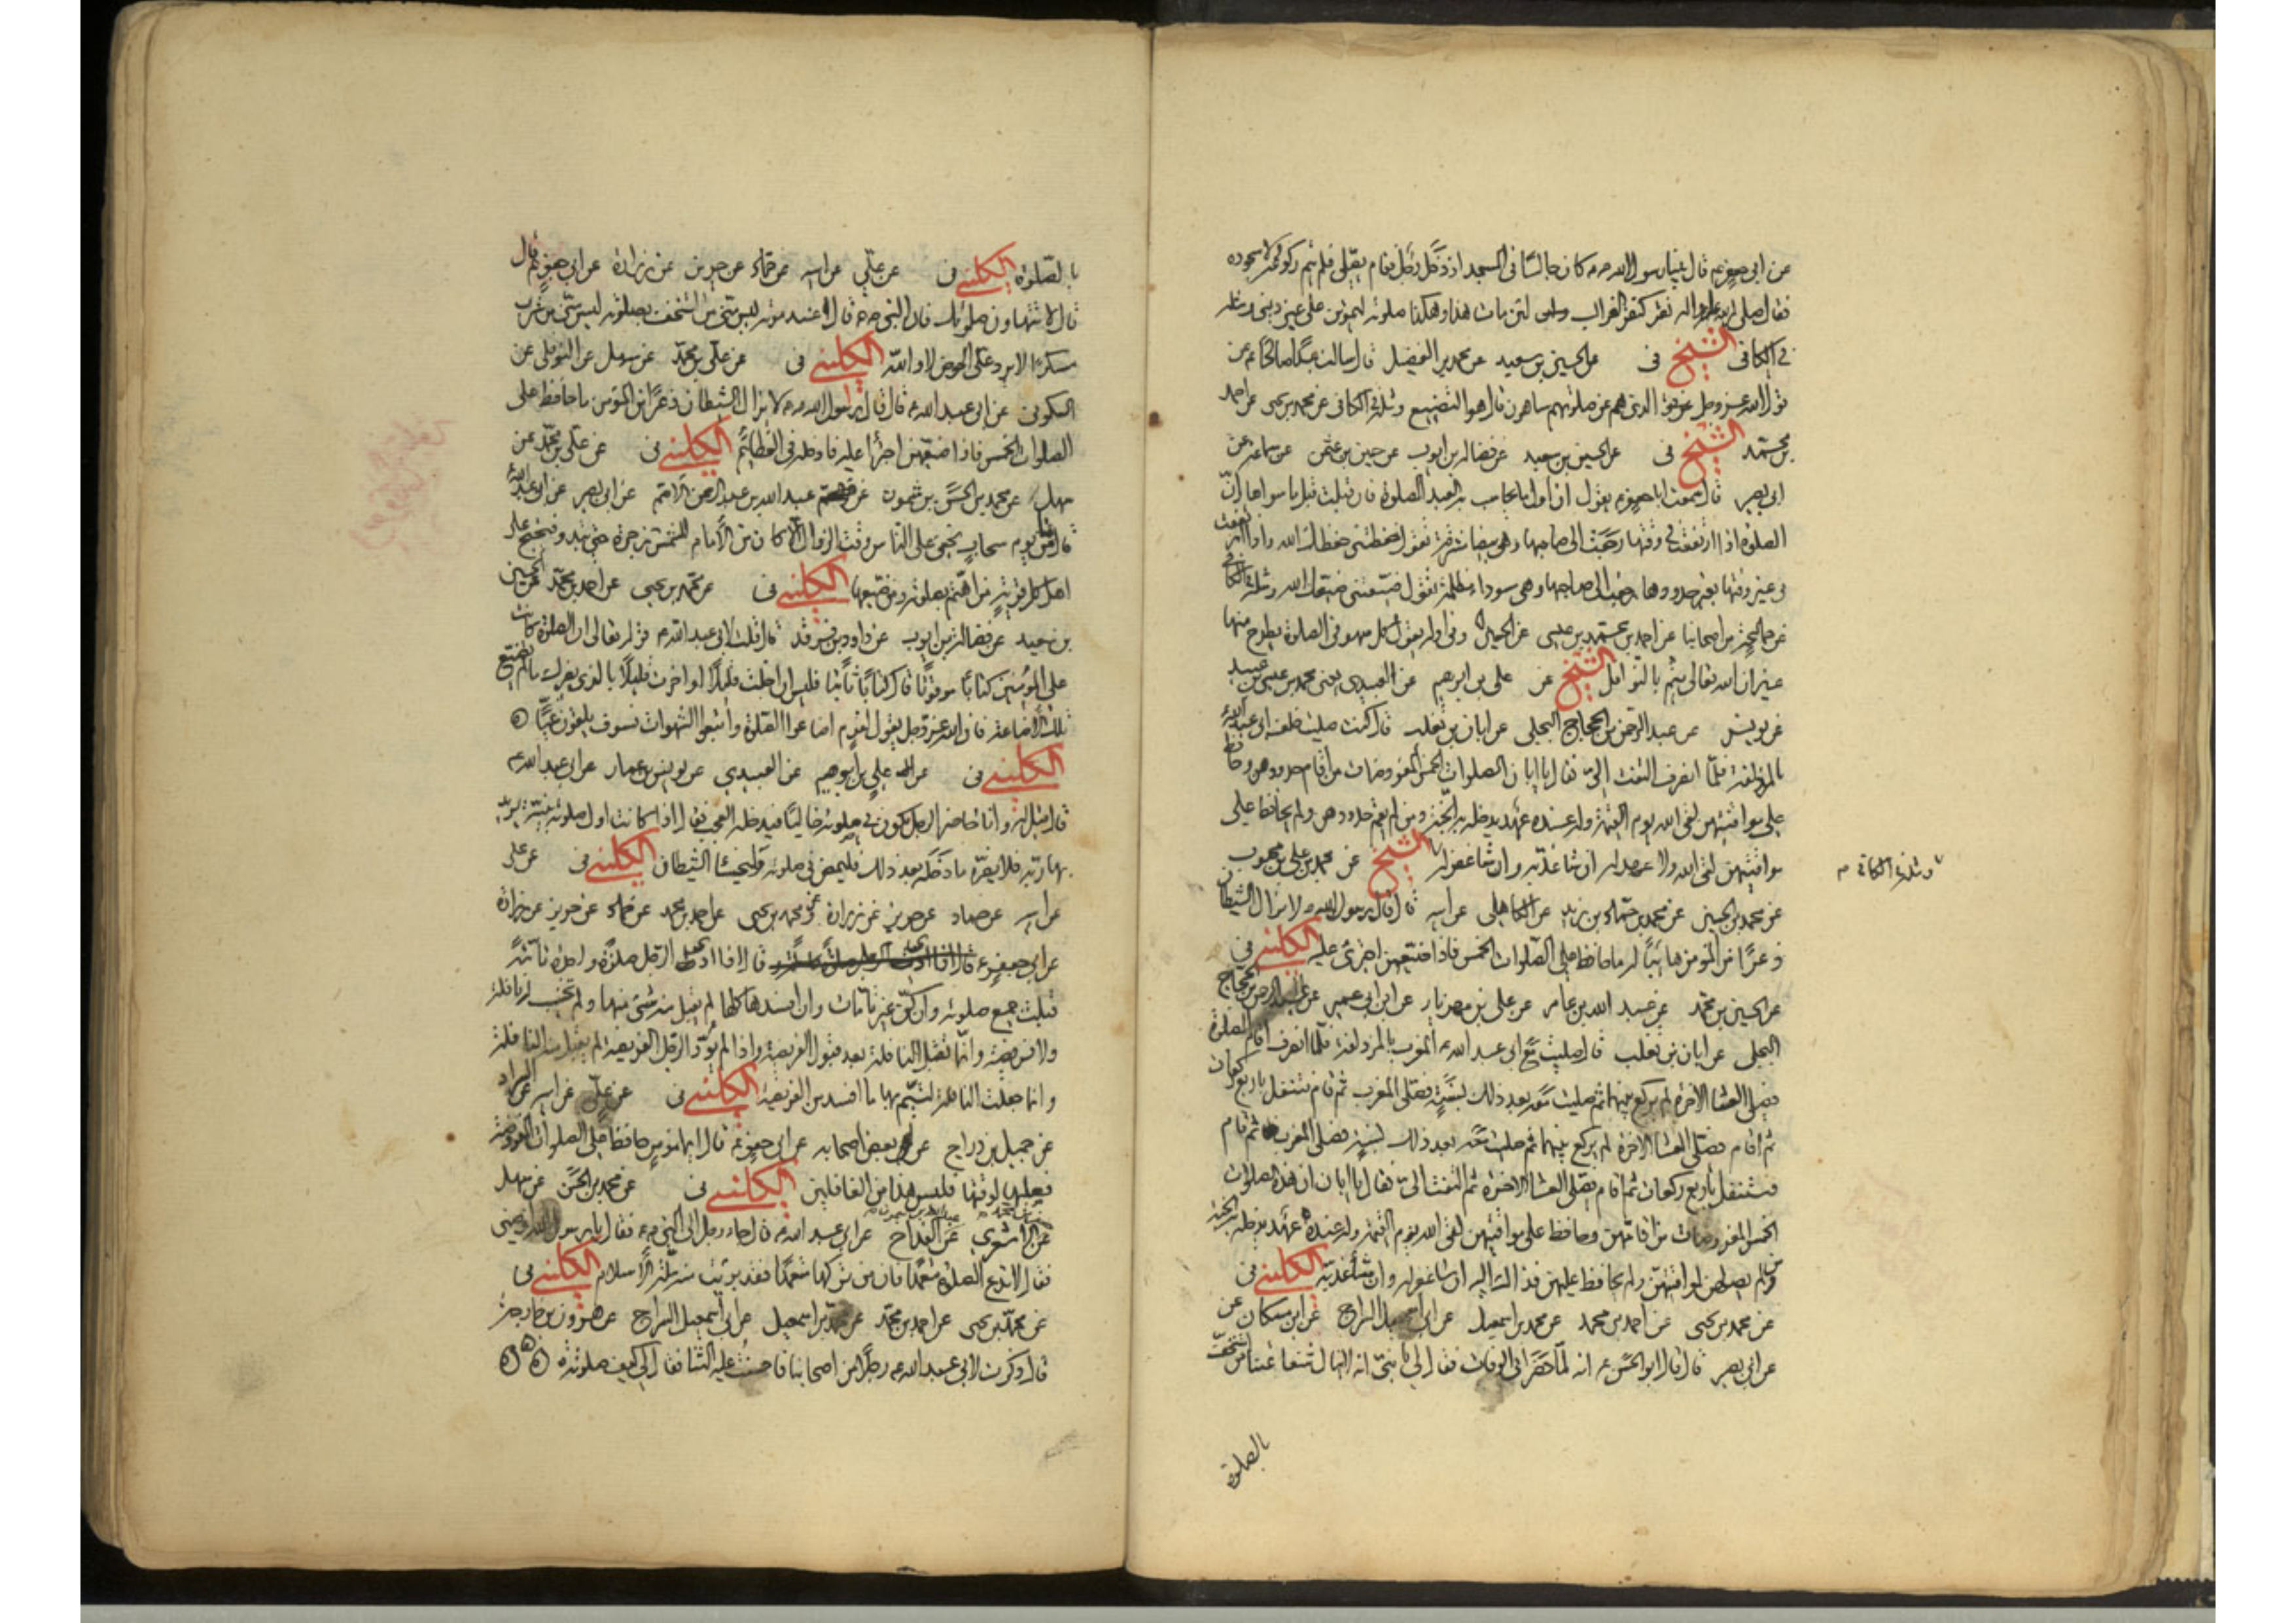 عن ابى جعفر ع قال بينا رسول الله ص كان جالسا فى المسجد اذ دخل رجل فقام يصلى فلم يتم ركوعه ولا سجوده
فقال صلى الله عليه واله نقر كنقر الغراب لئن مات هذا وهكذا صلوته ليموتن على غير دينى ومثله
فى الكافى الشيخ فى عن الحسين بن سعيد عن محمد بن الفضيل قال سالت عبدا صالحا ع عن
قول الله عز وجل الذين هم عن صلوتهم ساهون قال هو التضييع ومثله فى الكافى عن محمد بن يحيى عن احمد
بن محمد الشيخ فى عن الحسين بن سعيد عن فضالة بن ايوب عن حسين بن عثمن عن سماعة عن
ابى بصير قال سمعت ابا جعفر ع يقول ان اول ما يحاسب به العبد الصلوة فان قبلت قبل ما سواها ان
الصلوة اذا ارتفعت فى وقتها رجعت الى صاحبها وهى بيضا مشرقة تقول حفظتنى حفظك الله واذا ارتفعت
فى غير وقتها بغير حدودها رجعت الى صاحبها وهى سوداء مظلمة تقول ضيعتنى ضيعك الله ومثله فى الكافى
عن جماعة من اصحابنا عن احمد بن محمد بن عيسى عن الحسين وفى اوله يقول كل سهو فى الصلوة يطرح منها
غير ان الله تعالى يتم بالنوافل الشيخ عن على بن ابرهيم عن العبيدى يعنى محمد بن عيسى بن عبيد
عن يونس عن عبد الرحمن بن الحجاج البجلى عن ابان بن تغلب قال كنت صليت خلف ابى عبد الله ع
بالمزدلفة فلما انصرف التفت الى فقال يا ابان الصلوات الخمس المفروضات من اقام حدودهن وحافظ
على مواقيتهن لقى الله يوم القيمة وله عنده عهد يدخله به الجنة ومن لم يقم حدودهن ولم يحافظ على
مواقيتهن لقى الله ولا عهد له ان شا عذبه وان شا غفر له الشيخ عن محمد بن على بن محبوب
ومثله فى الكافى م
عن محمد بن الحسين عن محمد بن حماد بن زيد عن الكاهلى عن ابيه قال قال رسول الله ص لا يزال الشيطان
ذعرا من المؤمن هائبا له ما حافظ على الصلوات الخمس فاذا ضيعهن اجترى عليه الكلينى فى
عن الحسين بن محمد عن عبد الله بن عامر عن على بن مهزيار عن ابن ابى عمير عن عبد الرحمن بن الحجاج
البجلى عن ابان بن تغلب قال صليت مع ابى عبد الله ع المغرب بالمزدلفة فلما انصرف اقام الصلوة
فصلى العشا الاخرة لم يركع بينهما ثم صليت معه بعد ذلك بسنة فصلى المغرب ثم قام فتنفل باربع ركعات
ثم اقام فصلى العشا الاخرة لم يركع بينهما ثم صليت معه بعد ذلك بسنة فصلى المغرب ثم قام
فتنفل باربع ركعات ثم اقام فصلى العشا الاخرة ثم التفت الى فقال يا ابان ان هذه الصلوات
الخمس المفروضات من اقامهن وحافظ على مواقيتهن لقى الله يوم القيمة وله عنده عهد يدخله به الجنة
ومن لم يصلهن لمواقيتهن ولم يحافظ عليهن فذلك اليه ان شا غفر له وان شا عذبه الكلينى فى
عن محمد بن يحيى عن احمد بن محمد عن محمد بن اسمعيل عن ابى اسمعيل السراج عن ابن مسكان عن
عن ابى بصير قال قال ابو الحسن ع انه لما حضر ابى الوفات فقال لى يا بنى انه لا ينال شفاعتنا من استخف
بالصلوة
بالصلوة الكلينى فى عن على عن ابيه عن حماد عن حريز عن زرارة عن ابى جعفر ع قال
قال لا تتهاون بصلوتك فان النبى ص قال عند موته ليس منى من استخف بصلوته ليس منى من شرب
مسكرا لا يرد على الحوض لا والله الكلينى فى عن على بن محمد عن سهل عن النوفلى عن
السكونى عن ابى عبد الله ع قال قال رسول الله ص لا يزال الشيطان ذعرا من المؤمن ما حافظ على
الصلوات الخمس فاذا ضيعهن اجترا عليه فادخله فى العظائم الكلينى فى عن على بن محمد عن
سهل عن محمد بن الحسن بن شمون عن عبد الله بن عبد الرحمن الاصم عن ابى بصير عن ابى عبد الله ع
قال ما من يوم سحاب يخفى على الناس وقت الزوال الا كان من الامام للشمس زجرة حتى تبدو فيحتج على
اهل كل قرية من اهتم بصلوته ومن ضيعها الكلينى فى عن محمد بن يحيى عن احمد بن محمد عن الحسين
بن سعيد عن فضالة بن ايوب عن داود بن فرقد قال قلت لابى عبد الله ع قوله تعالى ان الصلوة كانت
على المؤمنين كتابا موقوتا قال كتابا ثابتا فليس ان عجلت قليلا او اخرت قليلا بالذى يضرك ما لم تضيع
تلك الاضاعة فان الله عز وجل يقول لقوم اضاعوا الصلوة واتبعوا الشهوات فسوف يلقون غيا
الكلينى فى عن على بن ابرهيم عن العبيدى عن يونس بن عمار عن ابى عبد الله ع
قال قيل له وانا حاضر الرجل يكون فى صلوته خاليا فيدخله العجب فقال اذا كانت اول صلوته بنية يريد
بها ربه فلا يضره ما دخله بعد ذلك فليمض فى صلوته وليخسا الشيطان الكلينى فى عن على
عن ابيه عن حماد عن حريز عن زرارة ومحمد بن يحيى عن احمد بن محمد عن حماد عن حريز عن زرارة
عن ابى جعفر ع قال اذا ادى الرجل صلوة واحدة تامة
قبلت جميع صلوته وان كن غير تامات وان افسدها كلها لم يقبل منه شى منها ولم تحسب له نافلة
ولا فريضة وانما تقبل النافلة بعد قبول الفريضة واذا لم يؤد الرجل الفريضة لم يقبل منه النافلة
وانما جعلت النافلة ليتم بها ما افسد من الفريضة الكلينى فى عن على عن ابيه عن
عن جميل بن دراج عن بعض اصحابه عن ابى جعفر ع قال ايما مؤمن حافظ على الصلوات المفروضة
فصلاها لوقتها فليس هذا من الغافلين الكلينى فى عن محمد بن الحسن عن سهل
عن الاشعرى عن القداح عن ابى عبد الله ع قال جاء رجل الى النبى ص فقال يا رسول الله اوصنى
فقال لا تدع الصلوة متعمدا فان من تركها متعمدا فقد برئت منه ملة الاسلام الكلينى فى
عن محمد بن يحيى عن احمد بن محمد عن محمد بن اسمعيل عن ابى اسمعيل السراج عن هرون بن خارجة
قال ذكرت لابى عبد الله ع رجلا من اصحابنا فاحسنت عليه الثنا فقال لى كيف صلوته